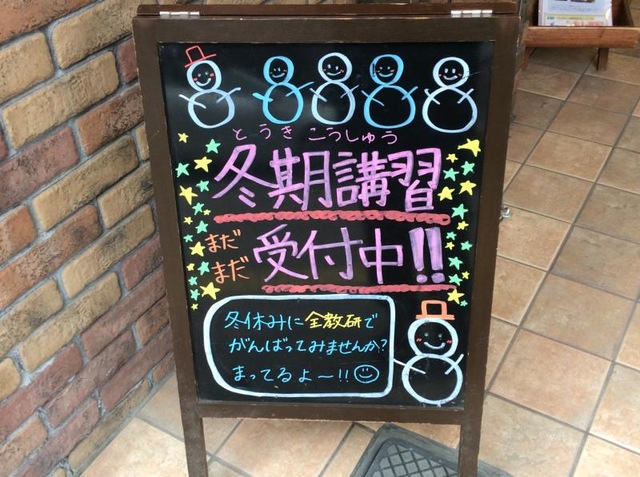 とうき こうしゅう
冬期講習
まだ
まだ 受付中!!
冬休みに全教研で
がんばってみませんか?
まってるよ〜!!